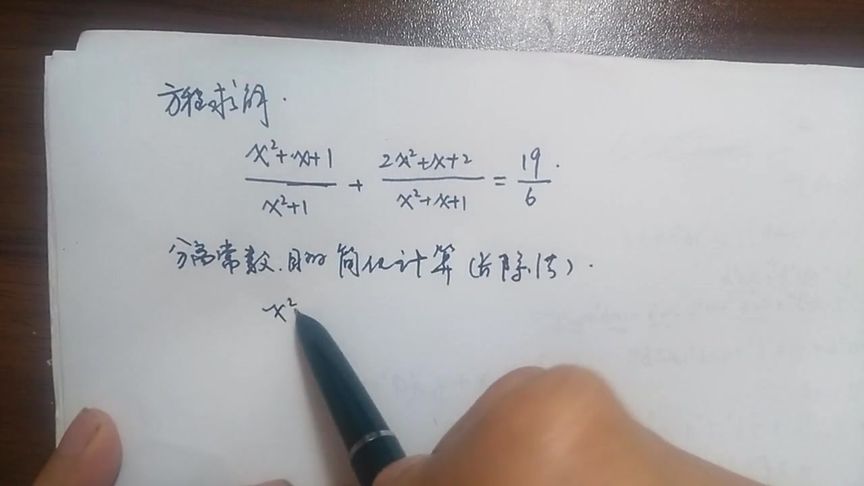 方程求解.
(x²+x+1)/(x²+1) + (2x²+x+2)/(x²+x+1) = 19/6.
分离常数.目的简化计算(长除法).
x²